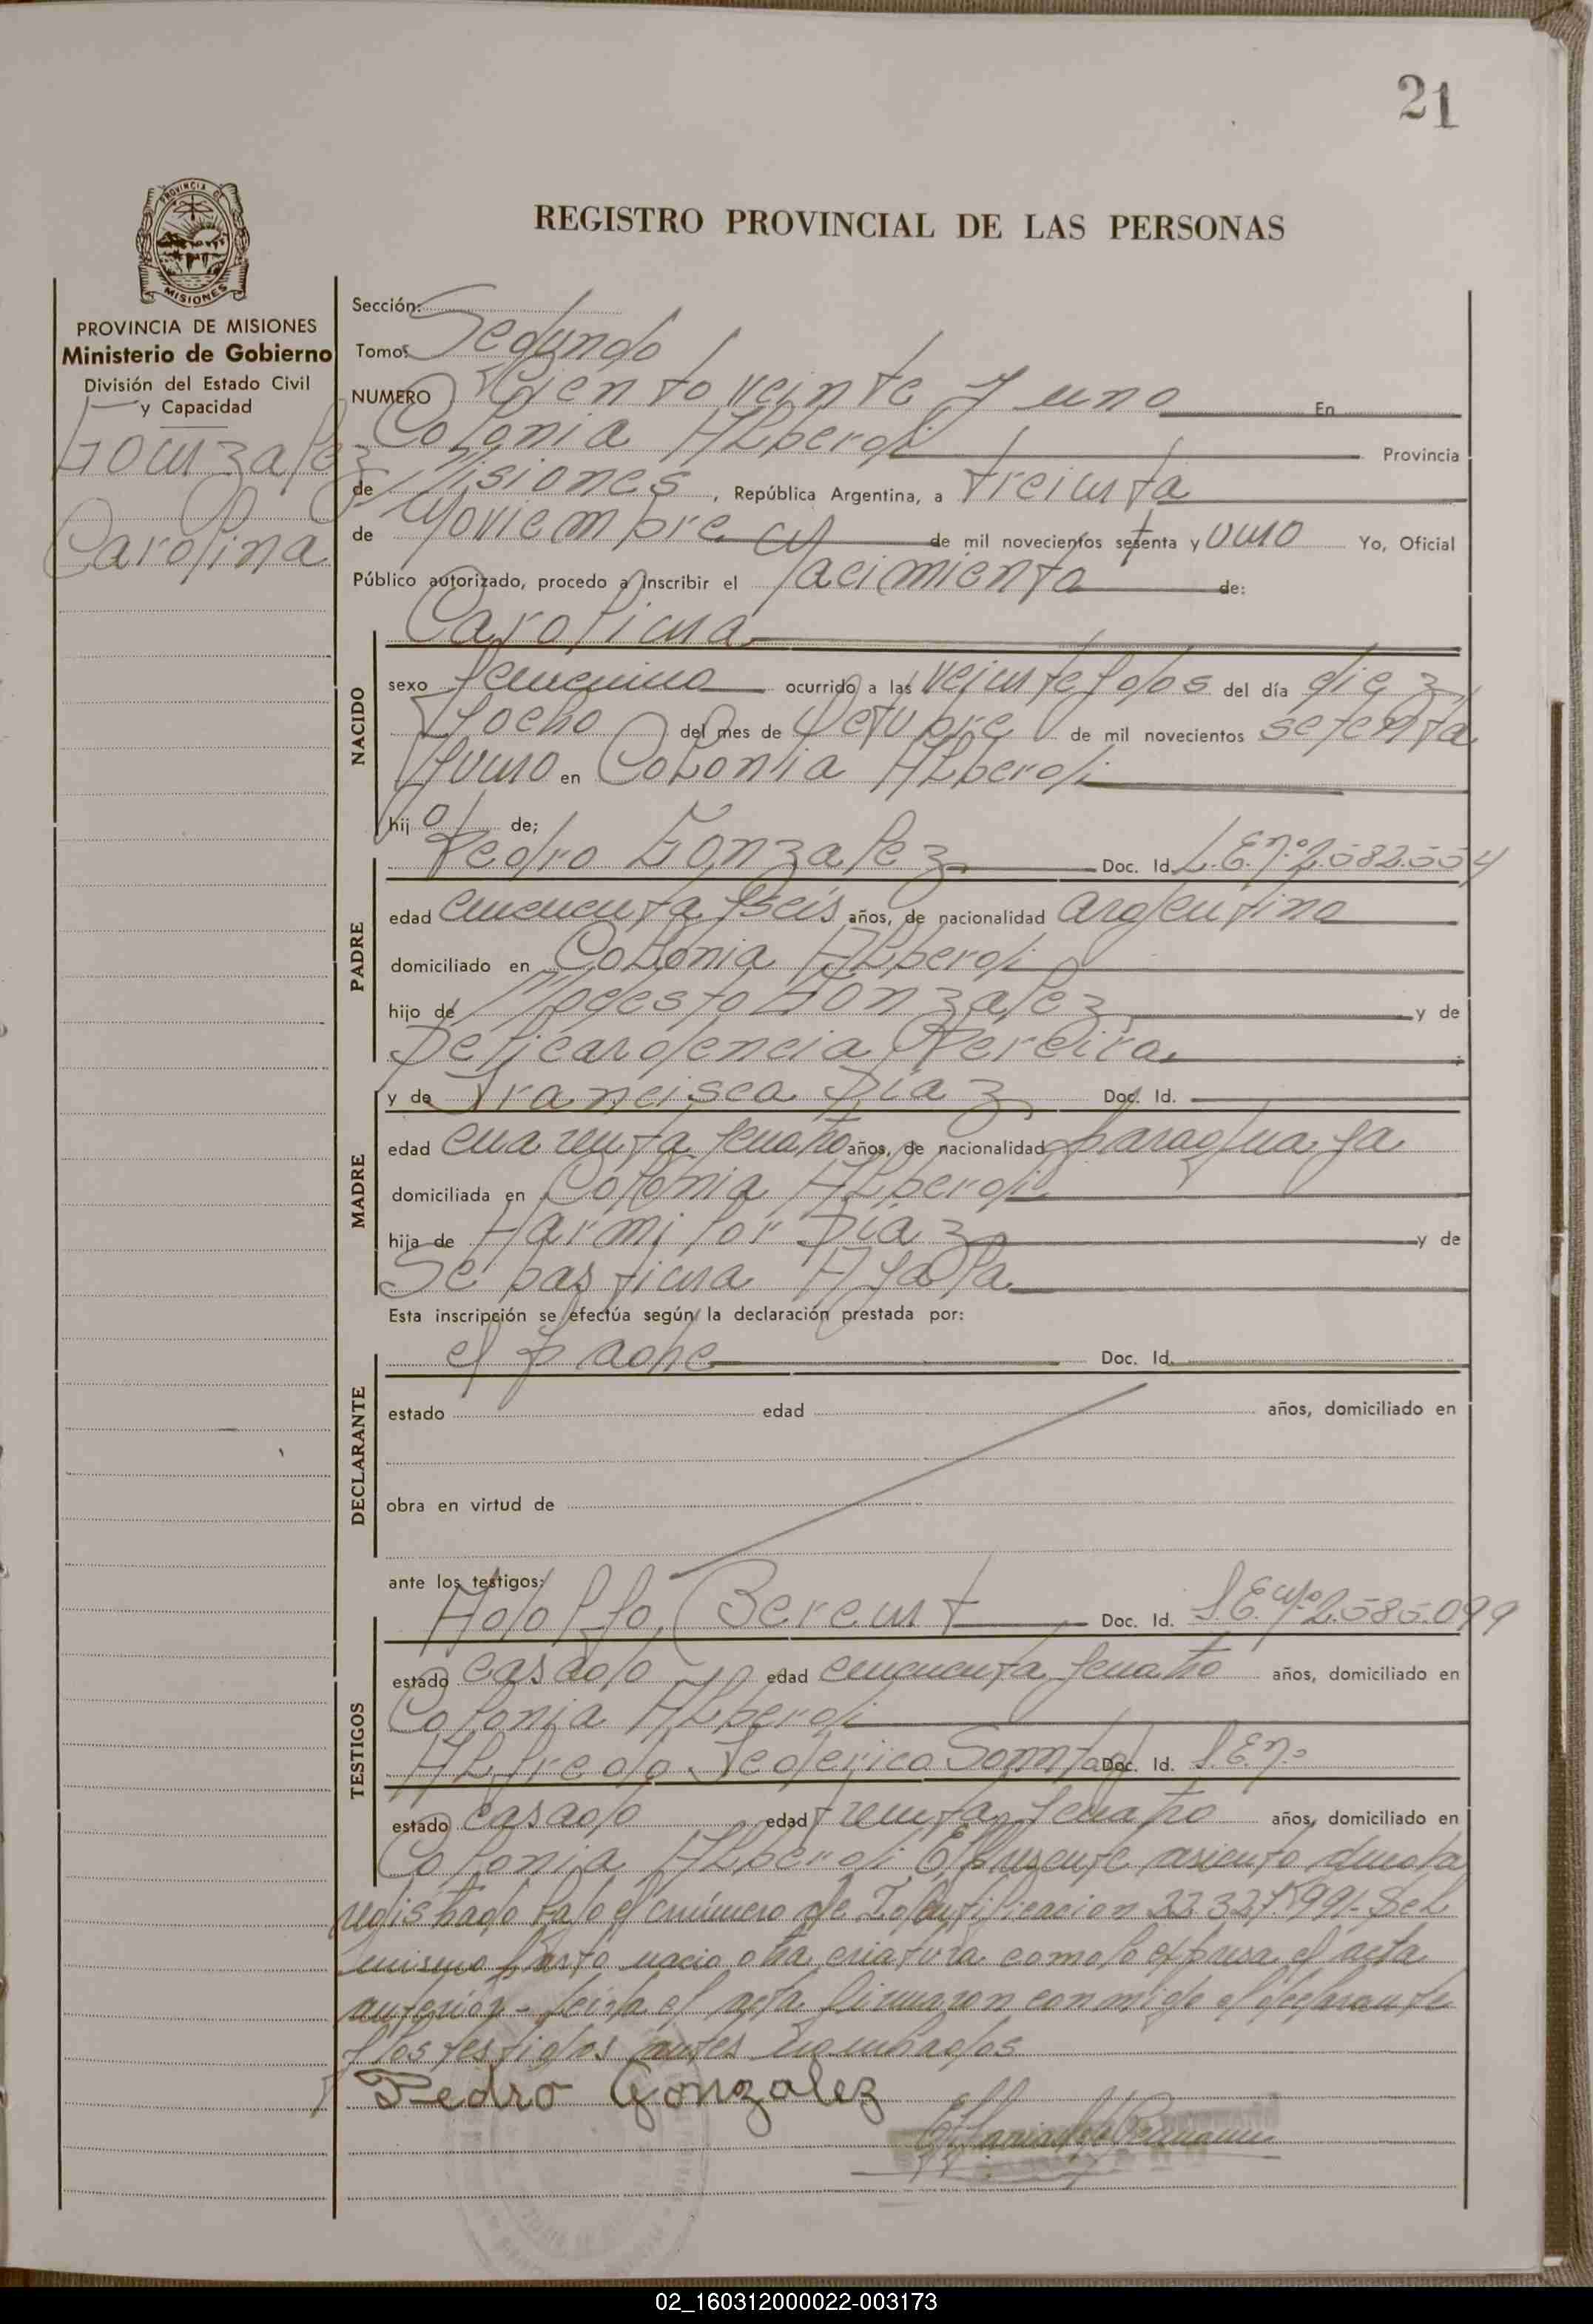 21
PROVINCIA DE
MISIONES
REGISTRO PROVINCIAL DE LAS PERSONAS
PROVINCIA DE MISIONES
Ministerio de Gobierno
División del Estado Civil
y Capacidad
Gonzalez
Carolina
Sección:
Tomo: Segundo
NUMERO Ciento veinte y uno En
Colonia Alberdi Provincia
de Misiones, República Argentina, a treinta
de Noviembre de mil novecientos setenta y uno Yo, Oficial
Público autorizado, procedo a inscribir el nacimiento de:
Carolina
NACIDO
sexo femenino ocurrido a las veinte y dos del día diez
y ocho del mes de Octubre de mil novecientos setenta
y uno en Colonia Alberdi
hij a de;
Pedro Gonzalez Doc. Id. L.E.nº 2.582.554
PADRE
edad cincuenta y seis años, de nacionalidad argentino
domiciliado en Colonia Alberdi
hijo de Modesto Gonzalez y de
Pereira
MADRE
y de Francisca Díaz Doc. Id.
edad cuarenta y cuatro años, de nacionalidad paraguaya
domiciliada en Colonia Alberdi
hija de Díaz y de
Sebastiana Ayala
Esta inscripción se efectúa según la declaración prestada por:
el padre Doc. Id.
DECLARANTE
estado edad años, domiciliado en
obra en virtud de
ante los testigos:
TESTIGOS
Adolfo Berent Doc. Id. L.E.nº 2.585.099
estado casado edad cincuenta y cuatro años, domiciliado en
Colonia Alberdi
Alfredo Federico Sonntag Doc. Id. L.E.nº
estado casado edad treinta y cuatro años, domiciliado en
Colonia Alberdi El presente asiento queda
registrado bajo el número de Identificacion 22.327.991. Del
mismo parto nacio otra criatura como lo expresa el acta
anterior. leida el acta firmaron conmigo el declarante
y los testigos antes nombrados
Pedro Gonzalez
02_160312000022-003173